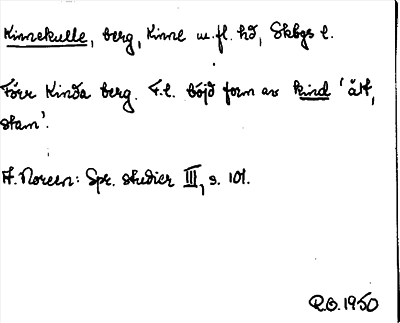 Kinnekulle, berg, Kinne w. fl. hd, Skbgs l.
Förr Kinda berg. F.l. böjd form av kind 'ätt,
stam'.
A. Noreen: Spr. studier III, s. 101.
R.O. 1950